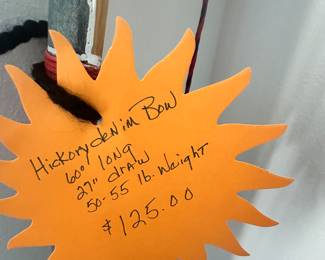 Hickory denim Bow
60" long
27" draw
50-55 lb. weight
$125.00